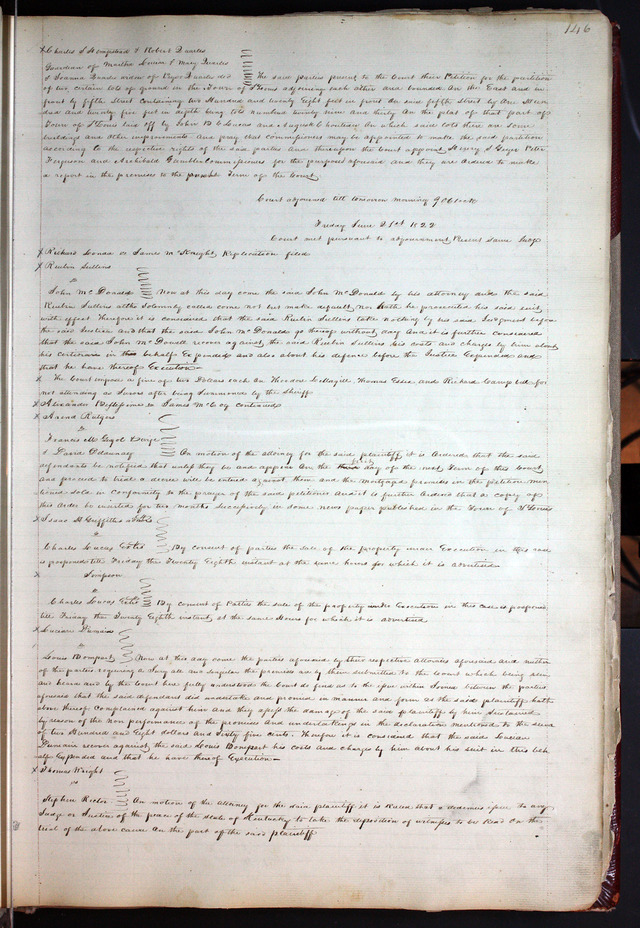 146
x Charles S Hempstead & Robert Quarles
Guardian of Martha Louisa & Mary Quarles
& Joanna Quarles widow of Pryor Quarles decd The said parties present to the Court their Petition for the partition
of two certain lots of ground in the Town of St Louis adjoining each other and bounded on the East and in
front by fifth Street Containing two Hundred and twenty Eight feet in front on said fifth street by One Hun
dred and twenty five feet in depth being lots numbered twenty nine and thirty on the plat of that part of
Town of St Louis laid off by John B C Lucas and August Chouteau on which said lots there are some
buildings and other improvements and pray that commissioners may be appointed to make the said partition
according to the respective rights of the said parties and thereupon the Court appoint Henry S Geyer Peter
Ferguson and Archibald Gamble Commissioners for the purposes aforesaid and they are ordered to make
a report in the premises to the present Term of the Court
Court adjourned till tomorrow morning 9 OClock
Friday June 21st 1822
Court met pursuant to adjournment Present same Judge
x Richard Lonax vs James McKnight Replication filed
x Reubin Sullens
vs
John McDonald Now at this day come the said John McDonald by his attorney and the said
Reubin Sullens altho Solemnly called come not but make default nor hath he prosecuted his said suit
with effect Therefore it is considered that the said Reubin Sullens take nothing by his said Judgment before
the said Justice and that the said John McDonald go thereof without day And it is further considered
that the said John McDonald recover against the said Reubin Sullens his costs and charges by him about
his certiorari in this behalf Expended and also about his defence before the Justice Expended and
that he have thereof Execution —
x The Court impose a fine of two Dollars each on Theodore Thomas Essex and Richard Camp bid for
not attending as Jurors after being Summoned by the Sheriff
x Alexander vs James McCoy continued
x Arend Rutgers
vs
Francis M Guyol
& David Delaunay On motion of the attorney for the said plaintiff it is Ordered that the said
defendants be notified that unless they be and appear on the first day of the next Term of this Court
and proceed to trial a decree will be entered against them and the Mortgaged premises in the petition men
tioned sold in conformity to the prayer of the said petitioner And it is further Ordered that a copy of
this Order be inserted for two months successively in some news paper published in the Town of St Louis
x Isaac H Griffith
vs
Charles Lucas Exrs By consent of parties the sale of the property under Execution in this case
is postponed till Friday the Twenty Eighth instant at the same hours for which it is advertised
x Simpson
vs
Charles Lucas Exrs By consent of Parties the sale of the property under Execution in this case is postponed
till Friday the Twenty Eighth instant at the same hours for which it is advertised
x Lucian Dumain
vs
Louis Bompart Now at this day come the parties aforesaid by their respective attornies aforesaid and neither
of the parties requiring a Jury all and singular the premises are by them submitted to the Court which being seen
and heard and by the Court here fully understood the Court do find as to the issue within Joined between the parties
aforesaid that the said defendant did undertake and promise in manner and form as the said plaintiff hath
above thereof complained against him and they assess the damage of the said plaintiff by him Sustained
by reason of the non performance of the promises and undertakings in the declaration mentioned to the sum
of two Hundred and Eight dollars and Sixty five cents. Therefore it is considered that the said Lucian
Dumain recover against the said Louis Bompart his costs and charges by him about his suit in this beh
alf Expended and that he have thereof Execution —
x Thomas Wright
vs
Stephen Rector On motion of the attorney for the said plaintiff it is Ruled that a dedimus issue to any
Judge or Justice of the peace of the state of Kentucky to take the deposition of witnesses to be Read on the
trial of the above cause on the part of the said plaintiff